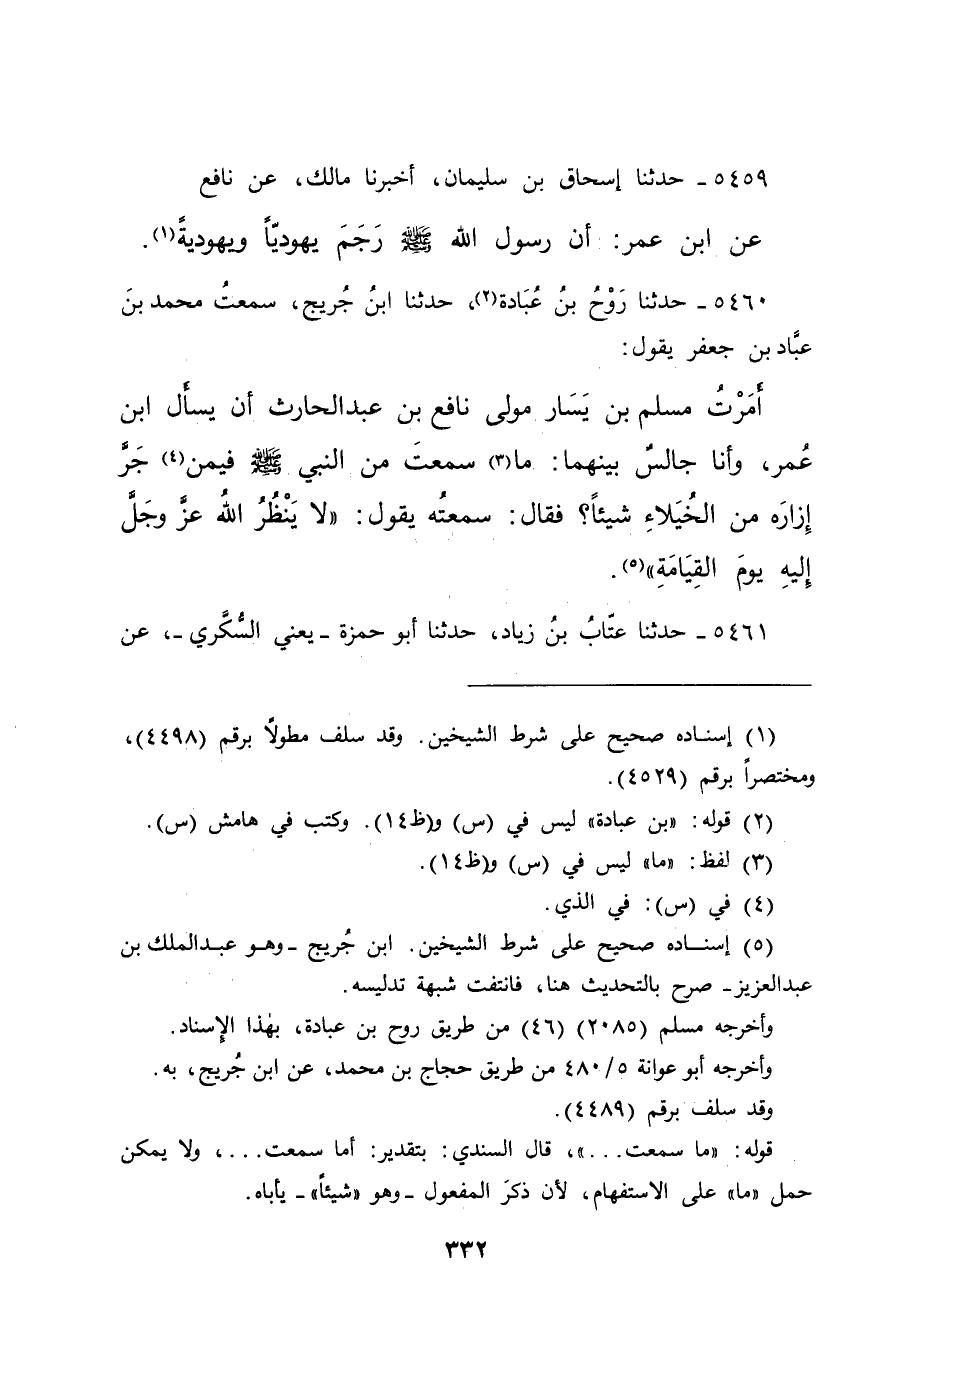 ٥٤٥٩ ـ حدثنا إسحاق بن سليمان، أخبرنا مالك، عن نافع
عن ابن عمر: أن رسول الله ﷺ رَجَمَ يهوديّاً ويهوديةً(١).
٥٤٦٠ ـ حدثنا رَوْحُ بنُ عُبَادة(٢)، حدثنا ابنُ جُريج، سمعتُ محمد بنَ
عبَّاد بن جعفر يقول:
أَمَرْتُ مسلم بن يَسَار مولى نافع بن عبدالحارث أن يسأَل ابن
عُمر، وأنا جالسٌ بينهما: ما(٣) سمعتَ من النبي ﷺ فيمن(٤) جَرَّ
إزارَه من الخُيَلاءِ شيئاً؟ فقال: سمعتُه يقول: «لا يَنْظُرُ اللهُ عزَّ وجَلَّ
إليهِ يومَ القِيَامَةِ»(٥).
٥٤٦١ ـ حدثنا عتّابُ بنُ زياد، حدثنا أبو حمزة ـ يعني السُّكَّري ـ، عن
(١) إسناده صحيح على شرط الشيخين. وقد سلف مطولاً برقم (٤٤٩٨)،
ومختصراً برقم (٤٥٢٩).
(٢) قوله: «بن عبادة» ليس في (س) و(ظ١٤). وكتب في هامش (س).
(٣) لفظ: «ما» ليس في (س) و(ظ١٤).
(٤) في (س): في الذي.
(٥) إسناده صحيح على شرط الشيخين. ابن جُريج ـ وهو عبدالملك بن
عبدالعزيز ـ صرح بالتحديث هنا، فانتفت شبهة تدليسه.
وأخرجه مسلم (٢٠٨٥) (٤٦) من طريق روح بن عبادة، بهٰذا الإسناد.
وأخرجه أبو عوانة ٥/ ٤٨٠ من طريق حجاج بن محمد، عن ابن جُريج، به.
وقد سلف برقم (٤٤٨٩).
قوله: «ما سمعت...»، قال السندي: بتقدير: أما سمعت...، ولا يمكن
حمل «ما» على الاستفهام، لأن ذكرَ المفعول ـ وهو «شيئاً» ـ يأباه.
٣٣٢